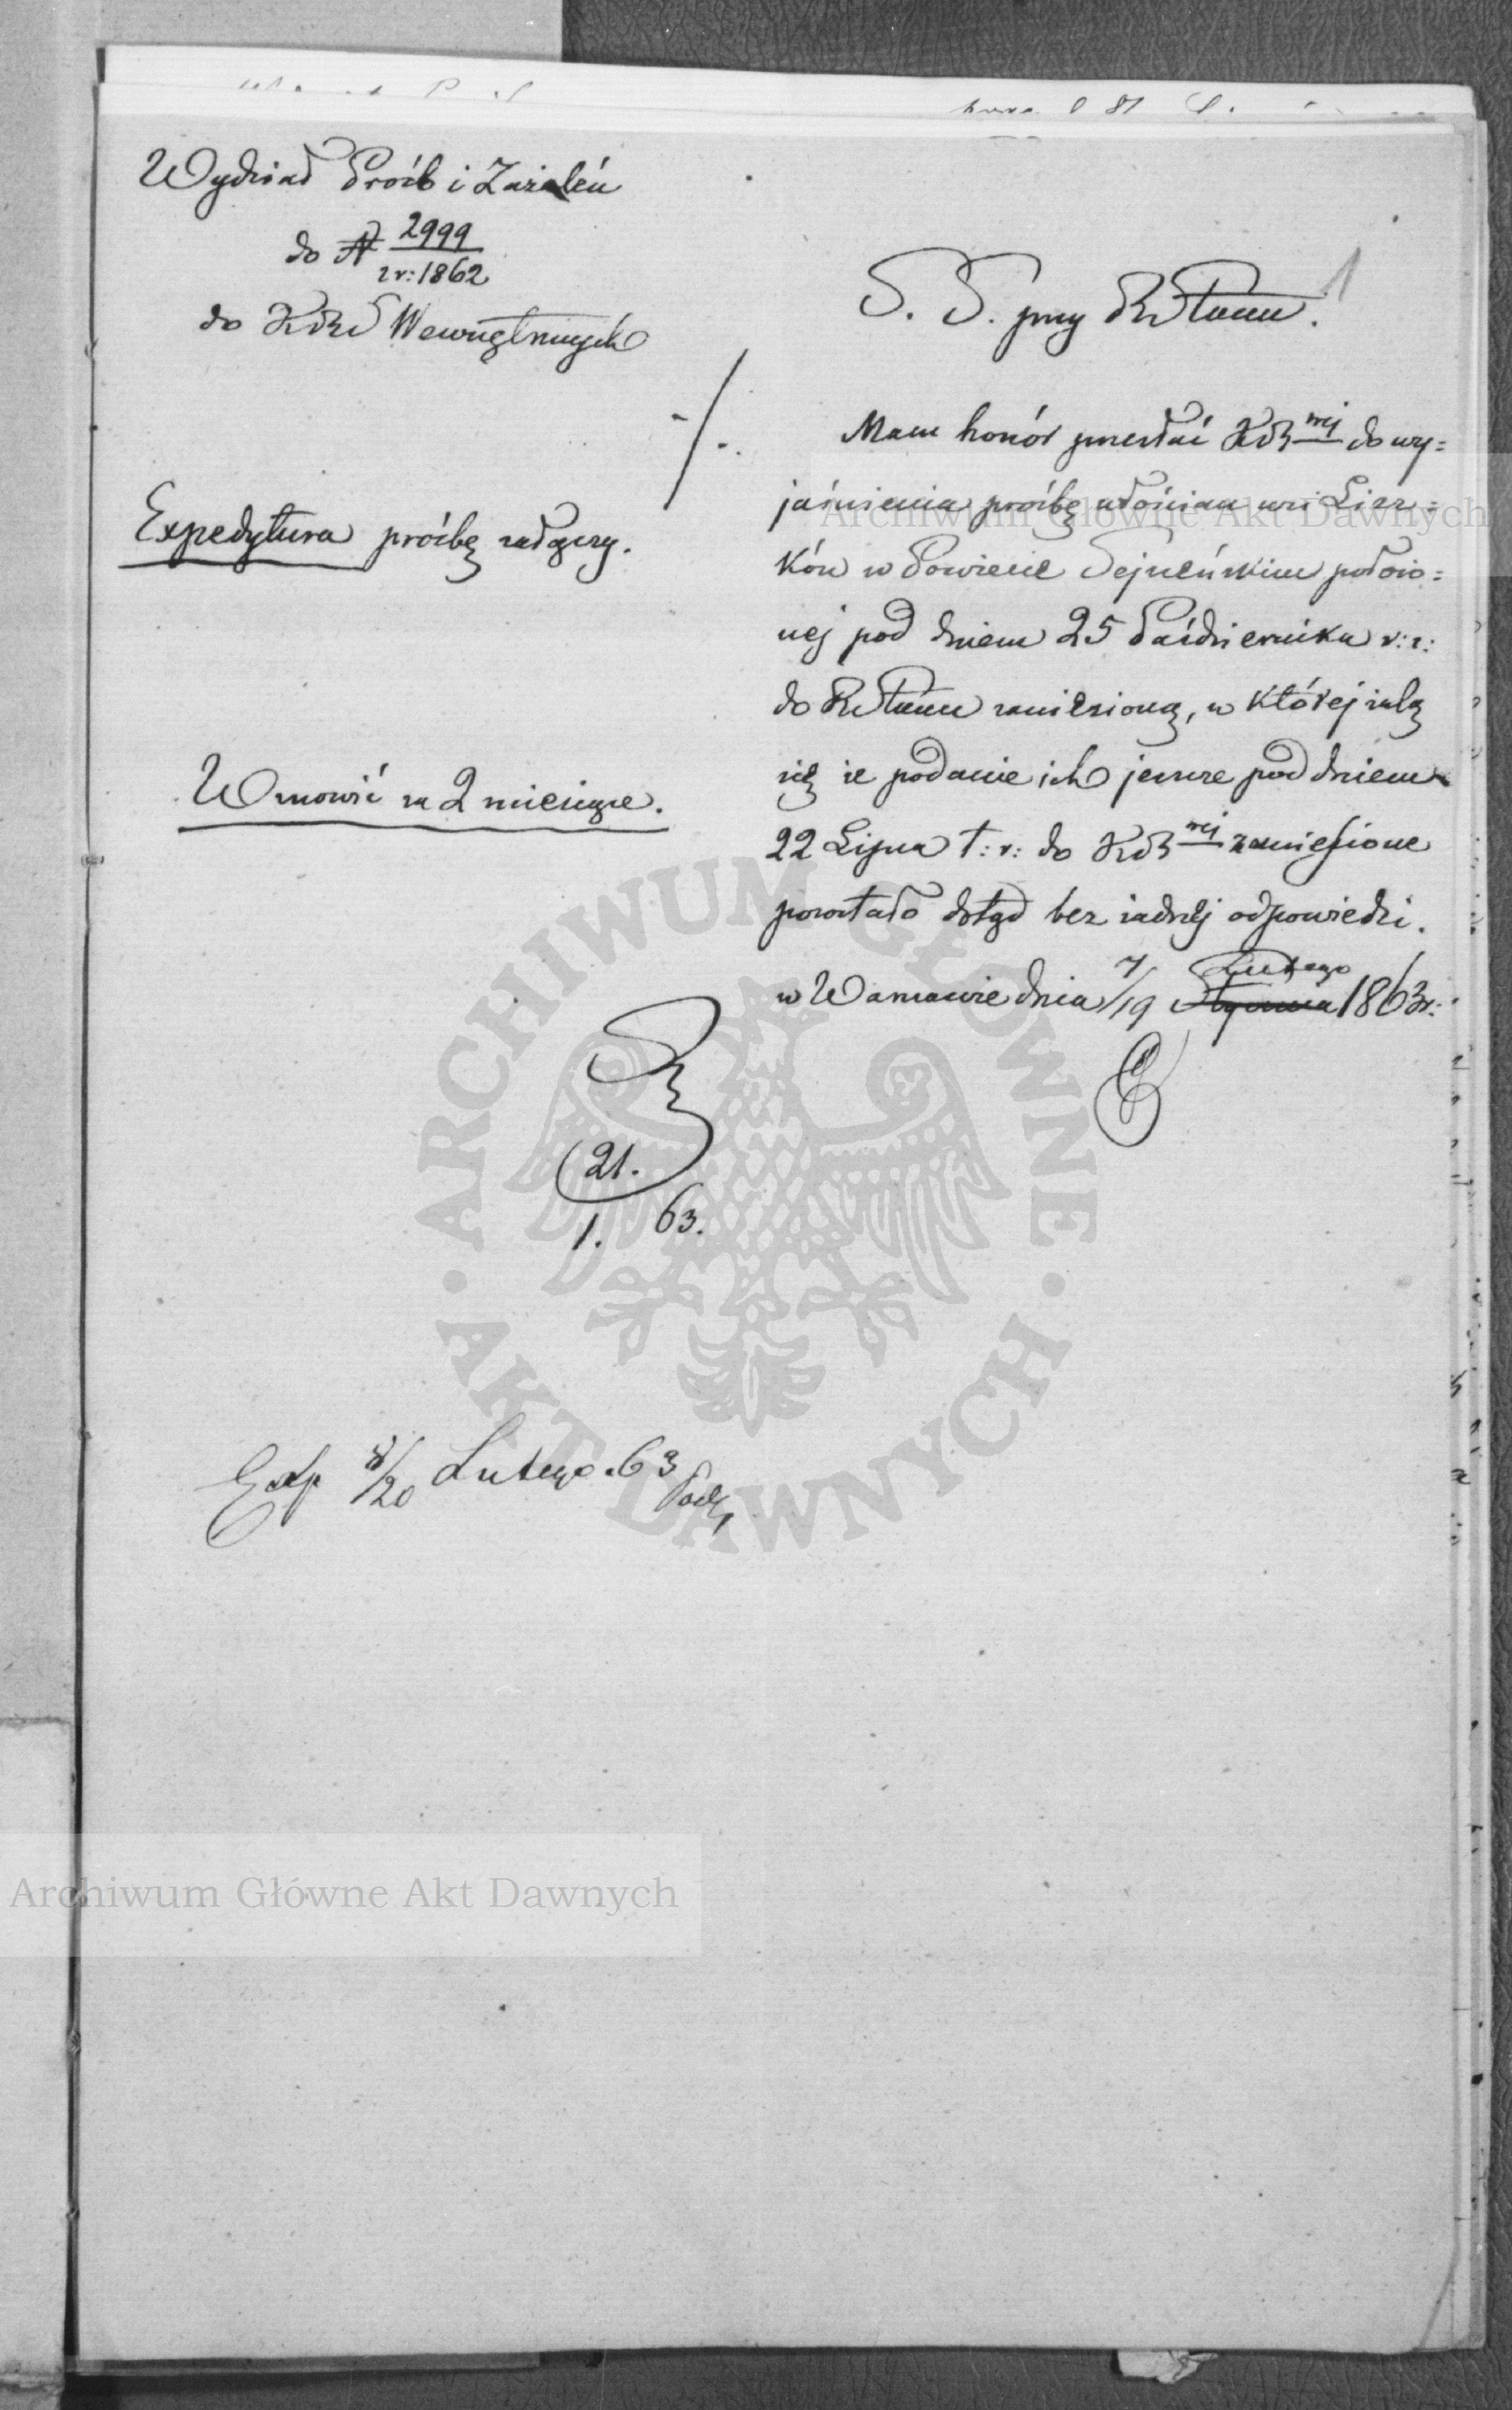 Wydział Próśb i Zażaleń
do N 2999
z r: 1862
do KRS Wewnętrznych
Expedytura prośbę załączy.
Wznowić za 2 miesiące.
S. S. przy RStanu.
1
Mam honór przesłać KR nej do wy=
jaśnienia prośbę włościan wsi Lizr=
ków w Powiecie Sejneńskim położo=
nej pod dniem 25 Października r: z:
do RStanu zaniesioną, w której żalą
się że podanie ich jeszcze pod dniem
22 Lipca t: r: do KR nej zaniesione
pozostało dotąd bez żadnej odpowiedzi.
w Warszawie dnia 7/19 Lutego Stycznia 1863 r:
21.
1. 63.
Exp 8/20 Lutego 63
Archiwum Główne Akt Dawnych
Archiwum Główne Akt Dawnych
ARCHIWUM GŁÓWNE · AKT DAWNYCH ·